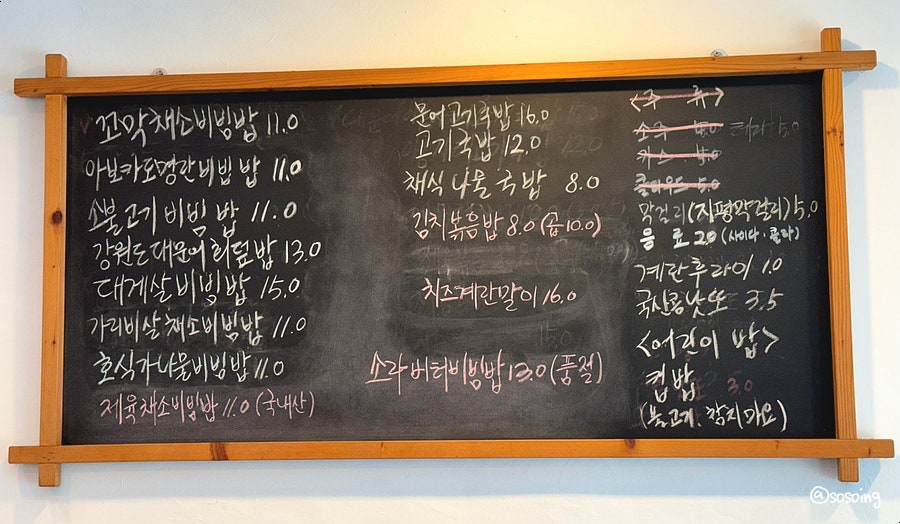 꼬막채소비빔밥 11.0
아보카도명란비빔밥 11.0
소불고기비빔밥 11.0
강원도대문어회덮밥 13.0
대게살비빔밥 15.0
가리비살채소비빔밥 11.0
호식가나물비빔밥 11.0
제육채소비빔밥 11.0 (국내산)
문어고기국밥 16.0
고기국밥 12.0
채식나물국밥 8.0
김치볶음밥 8.0 (곱10.0)
치즈계란말이 16.0
소라버터비빔밥 13.0 (품절)
<주 류>
소주 5.0 테라 5.0
카스 5.0
클라우드 5.0
막걸리(지평막걸리) 5.0
음료 2.0 (사이다·콜라)
계란후라이 1.0
국산콩낫또 3.5
<어린이 밥>
컵밥 3.0
(불고기, 참치마요)
@sosoing